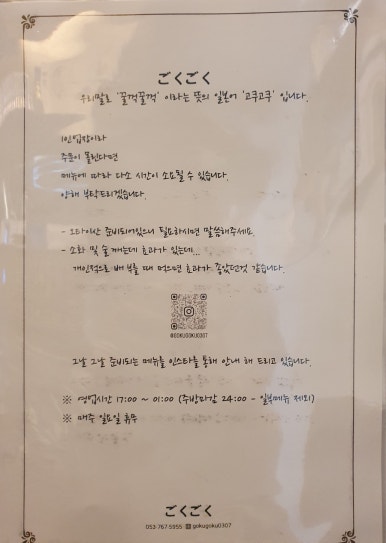 ごくごく
우리말로 '꿀꺽꿀꺽' 이라는 뜻의 일본어 '고쿠고쿠' 입니다.
1인업장이라
주문이 몰린다면
메뉴에 따라 다소 시간이 소요될 수 있습니다.
양해 부탁드리겠습니다.
- 오타이산 준비되어있으니 필요하시면 말씀해주세요.
- 소화 및 술 깨는데 효과가 있는데...
개인적으로 배 부를 때 먹으면 효과가 좋았던것 같습니다.
@GOKUGOKU0307
그날 그날 준비되는 메뉴들 인스타를 통해 안내 해 드리고 있습니다.
※ 영업시간 17:00 ~ 01:00 (주방마감 24:00 - 일부메뉴 제외)
※ 매주 일요일 휴무
ごくごく
053-767-5955 gokugoku0307